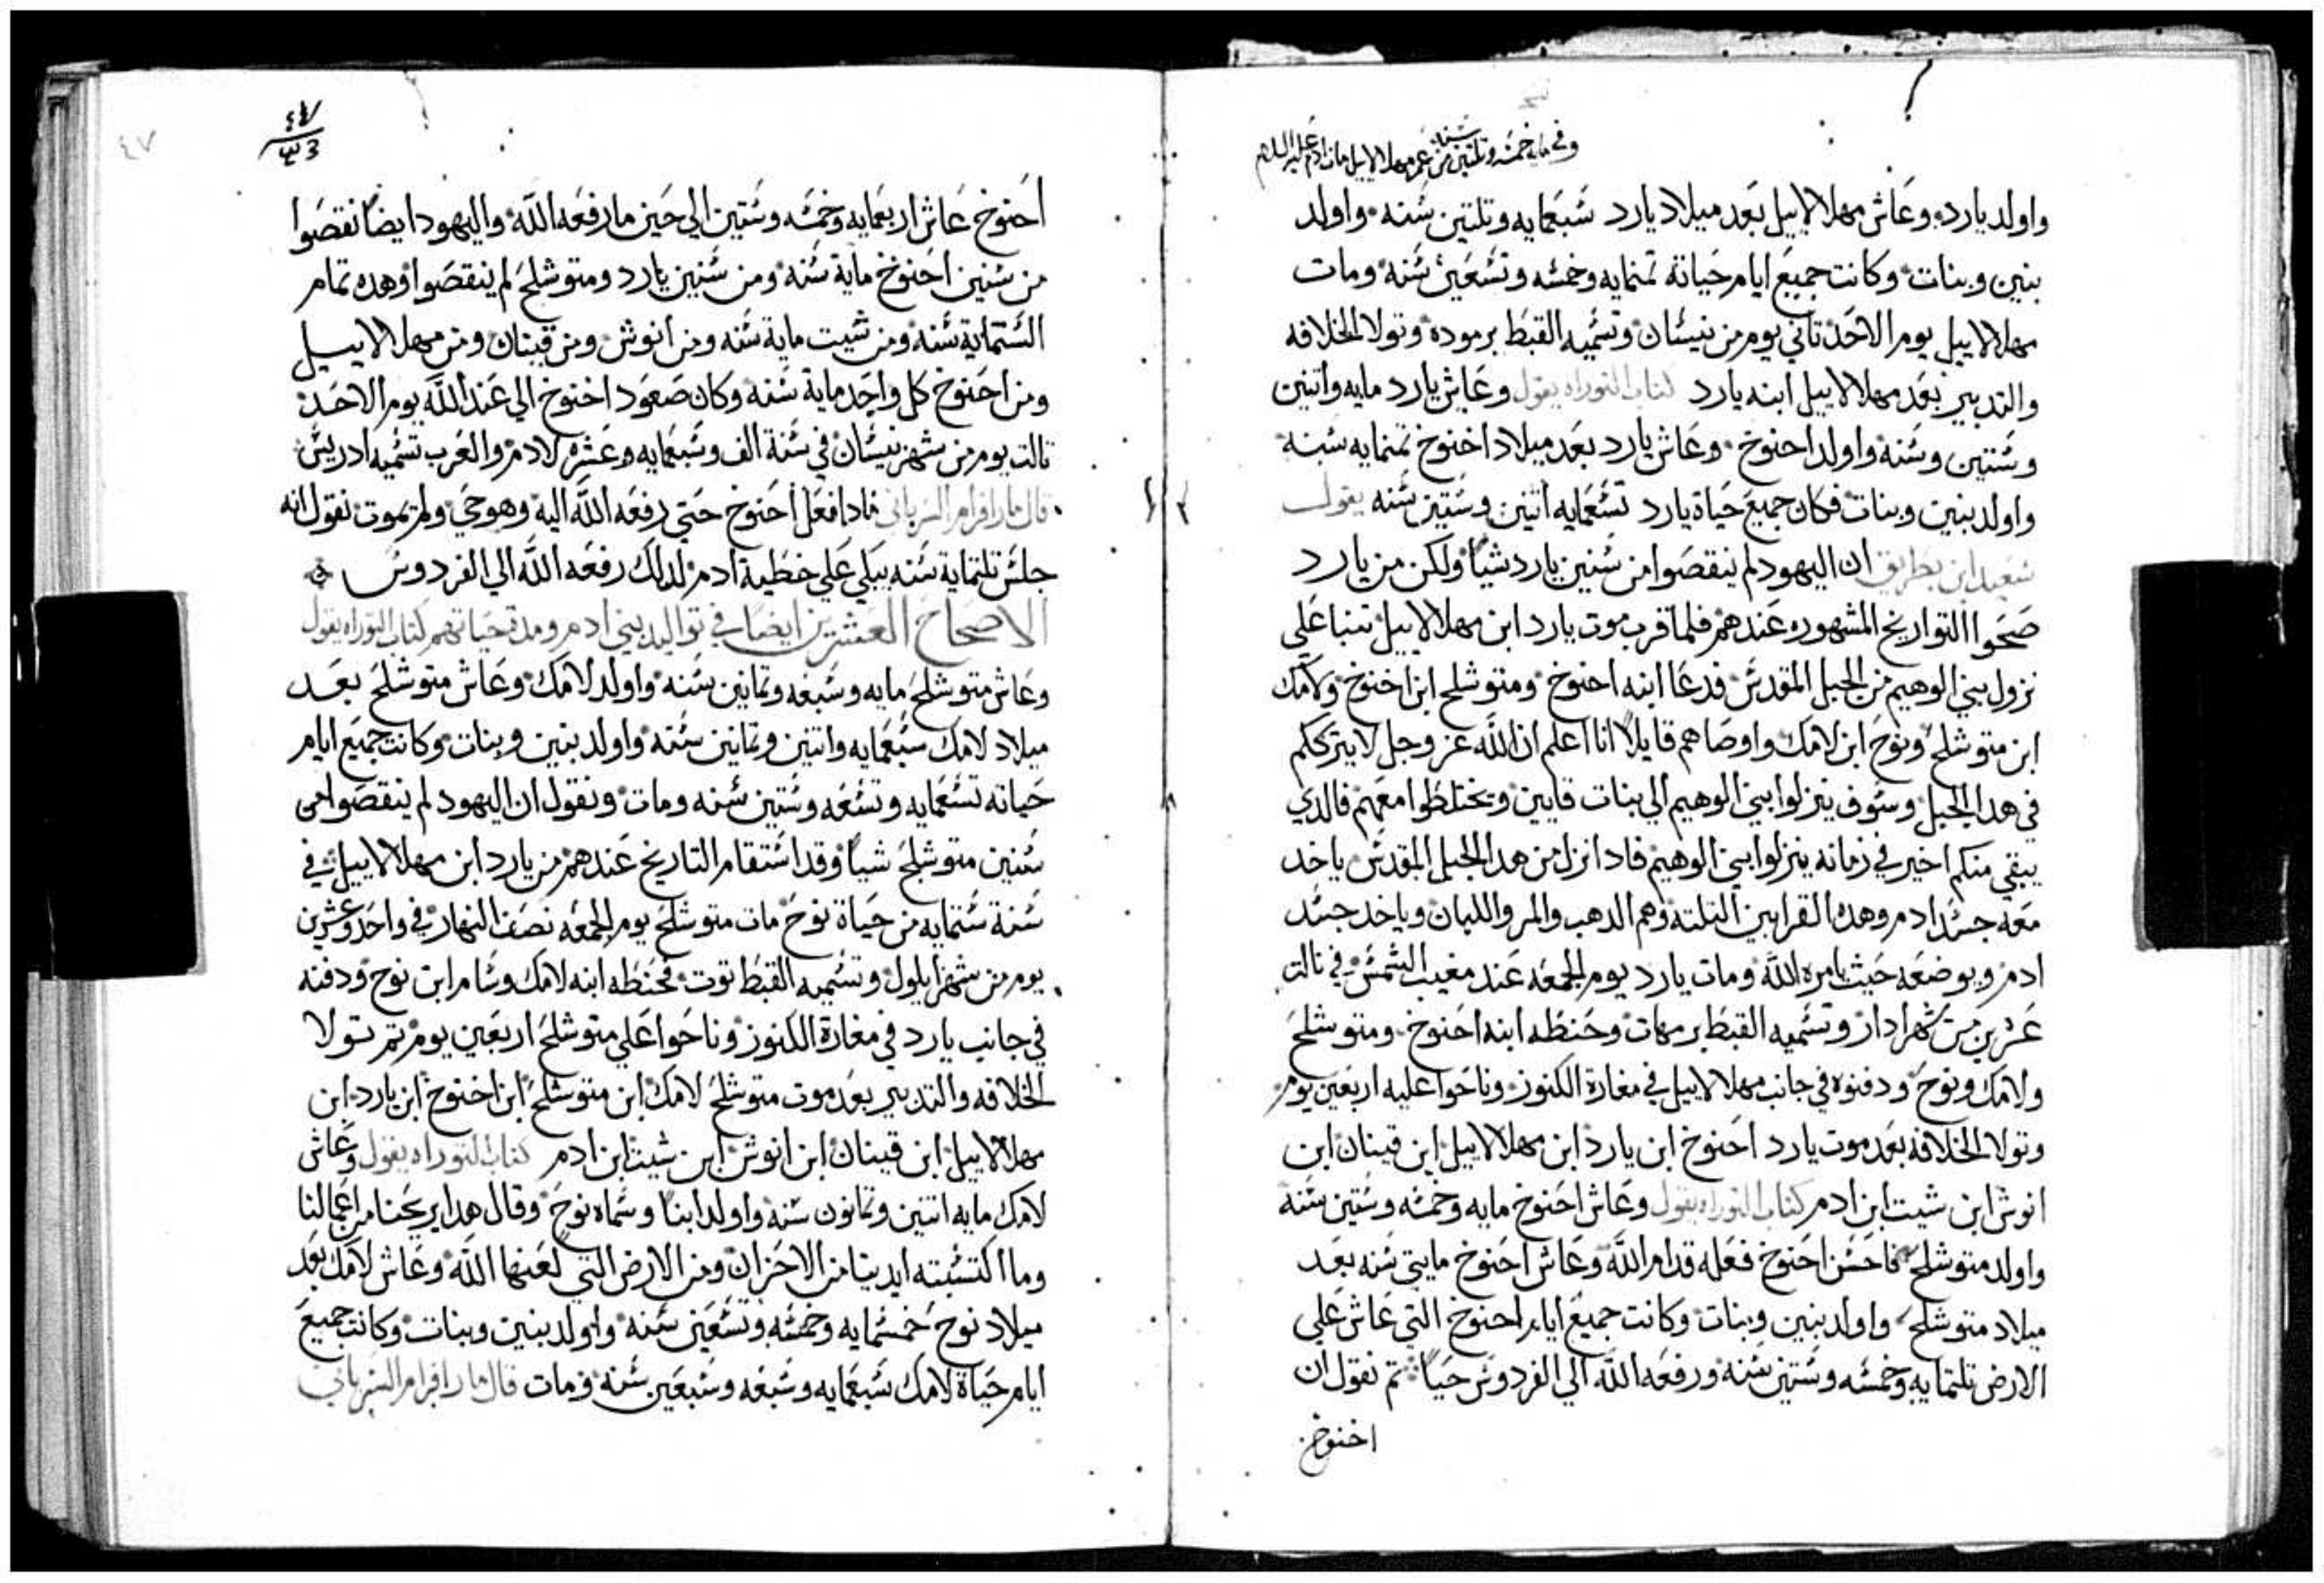 وفي مايه خمسه وتلتين سنه من عمر مهلالاييل مات ادم عليه السلام
واولد يارد وعاش مهلالاييل بعد ميلاد يارد سبعمايه وتلتين سنه واولد
بنين وبنات وكانت جميع ايام حياته تمنمايه وخمسه وتسعين سنه ومات
مهلالاييل يوم الاحد تاني يوم من نيسان وتسميه القبط برموده وتولا الخلافه
والتدبير بعد مهلالاييل ابنه يارد كتاب التوراه يقول وعاش يارد مايه واتنين
وستين وسنه واولد احنوخ وعاش يارد بعد ميلاد اخنوخ تمنمايه سنه
واولد بنين وبنات فكان جميع حياة يارد تسعمايه اتنين وستين سنه يقول
سعيد ابن بطريق ان اليهود لم ينقصوا من سنين يارد شيا ولكن من يارد
صحوا التواريخ المشهوره عندهم فلما قرب موت يارد ابن مهلالاييل تنبا علي
نزول بني الوهيم من الجبل المقدس فدعا ابنه احنوخ ومتوشلح ابن اخنوخ ولامك
ابن متوشلح ونوح ابن لامك واوصاهم قايلا انا اعلم ان الله عز وجل لا يترككم
في هدا الجبل وسوف ينزلوا بني الوهيم الي بنات قايين ويختلطوا معهم فالدي
يبقي منكم اخير في زمانه ينزلوا بني الوهيم فادا نزل من هدا الجبل المقدس ياخد
معه جسد ادم وهده القرابين التلته وهم الدهب والمر واللبان وياخد جسد
ادم ويوضعه حيث يامره الله ومات يارد يوم الجمعه عند مغيب الشمس في تالت
عشرين من شهر ادار وتسميه القبط برمهات وحنطه ابنه احنوخ ومتوشلح
ولامك ونوح ودفنوه في جانب مهلالاييل في مغارة الكنوز وناحوا عليه اربعين يوم
وتولا الخلافه بعد موت يارد احنوخ ابن يارد ابن مهلالاييل ابن قينان ابن
انوش ابن شيت ابن ادم كتاب التوراه يقول وعاش احنوخ مايه وخمسه وستين سنه
واولد متوشلح فاحسن احنوخ فعله قدام الله وعاش احنوخ مايتي سنه بعد
ميلاد متوشلح واولد بنين وبنات وكانت جميع ايام احنوخ التي عاش علي
الارض تلتمايه وخمسه وستين سنه ورفعه الله الي الفردوس حيا تم نقول ان
اخنوخ
٤٧
٤٧
احنوخ عاش اربعمايه وخمسه وستين الي حين ما رفعه الله واليهود ايضا نقصوا
من سنين احنوخ ماية سنه ومن سنين يارد ومتوشلح لم ينقصوا وهده تمام
الستماية سنه ومن شيت ماية سنه ومن انوش ومن قينان ومن مهلالاييل
ومن احنوخ كل واحد ماية سنه وكان صعود اخنوخ الي عند الله يوم الاحد
تالت يوم من شهر نيسان في سنة الف وسبعمايه وعشره لادم والعرب تسميه ادريس
قال مار افرام السرياني مادا فعل احنوخ حتي رفعه الله اليه وهو حي ولم يموت نقول انه
جلس تلتماية سنه يبكي علي خطية ادم لدلك رفعه الله الي الفردوس
الاصحاح العشرين ايضا في تواليد بني ادم ومدة حياتهم كتاب التوراه يقول
وعاش متوشلح مايه وسبعه وتمانين سنه واولد لامك وعاش متوشلح بعد
ميلاد لامك سبعمايه واتنين وتمانين سنه واولد بنين وبنات وكانت جميع ايام
حياته تسعمايه وتسعه وستين سنه ومات ونقول ان اليهود لم ينقصوا من
سنين متوشلح شيا وقد استقام التاريخ عندهم من يارد ابن مهلالاييل في
سنة ستمايه من حياة نوح مات متوشلح يوم الجمعه نصف النهار في واحد وعشرين
يوم من شهر ايلول وتسميه القبط توت فحنطه ابنه لامك وسام ابن نوح ودفنه
في جانب يارد في مغارة الكنوز وناحوا علي متوشلح اربعين يوم تم تولا
الخلافه والتدبير بعد موت متوشلح لامك ابن متوشلح ابن اخنوخ ابن يارد ابن
مهلالاييل ابن قينان ابن انوش ابن شيت ابن ادم كتاب التوراه يقول وعاش
لامك مايه اتنين وتمانون سنه واولد ابنا وسماه نوح وقال هدا يريحنا من اعمالنا
وما اكتسبته ايدينا من الاحزان ومن الارض التي لعنها الله وعاش لامك بعد
ميلاد نوح خمسمايه وخمسه وتسعين سنه واولد بنين وبنات وكانت جميع
ايام حياة لامك سبعمايه وسبعه وسبعين سنه ومات قال مار افرام السرياني